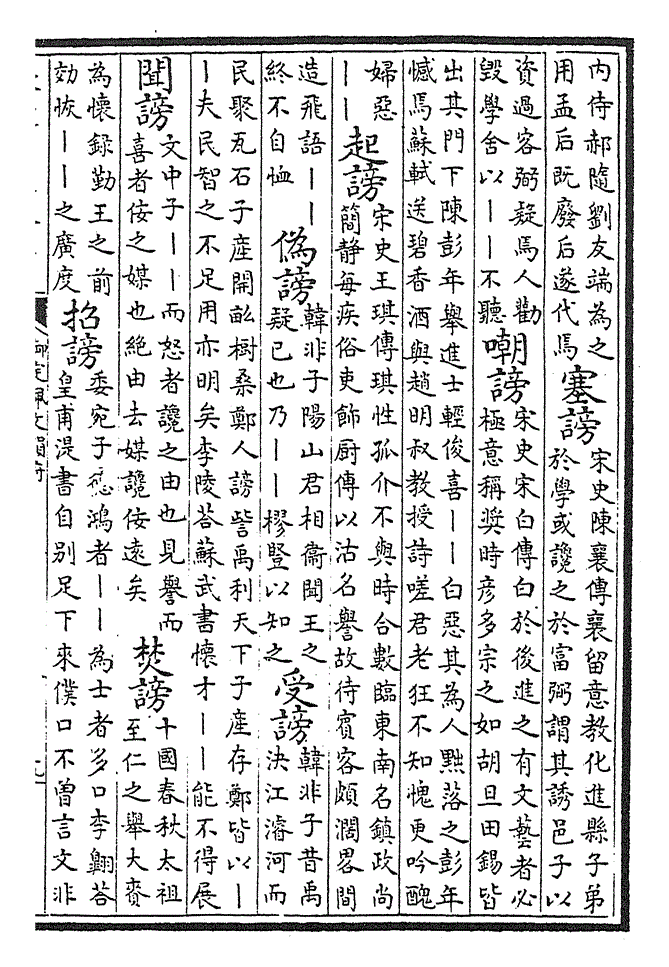 内侍郝隨劉友端為之
用孟后既廢后遂代焉
塞謗
宋史陳襄傳襄留意教化進縣子弟
於學或讒之於富弼謂其誘邑子以
資過客弼疑焉人勸
毀學舍以丨丨不聽
嘲謗
宋史宋白傳白於後進之有文藝者必
極意稱奨時彦多宗之如胡旦田錫皆
出其門下陳彭年舉進士輕俊喜丨丨白惡其為人黜落之彭年
憾焉蘇軾送碧香酒與趙明叔教授詩嗟君老狂不知愧更吟醜
婦惡
丨丨
起謗
宋史王琪傳琪性孤介不與時合數臨東南名鎮政尚
簡静每疾俗吏飾厨傳以沽名譽故待賓客頗濶畧間
造飛語丨丨
終不自恤
偽謗
韓非子陽山君相衞聞王之
疑已也乃丨丨樛豎以知之
受謗
韓非子昔禹
決江濬河而
民聚瓦石子產開畝樹桑鄭人謗訾禹利天下子產存鄭皆以丨
丨夫民智之不足用亦明矣李陵荅蘇武書懷才丨丨能不得展
聞謗
文中子丨丨而怒者讒之由也見譽而
喜者佞之媒也絶由去媒讒佞遠矣
焚謗
十國春秋太祖
至仁之舉大賚
為懷録勤王之前
効恢丨丨之廣度
招謗
委宛子鴻者丨丨為士者多口李翺荅
皇甫湜書自别足下來僕口不曾言文非
御定佩文韻府